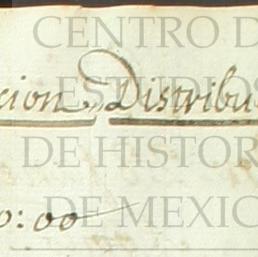 CENTRO D
ESTUDIOS
cion, Distribu
DE HISTOR
0:00
DE MEXIC